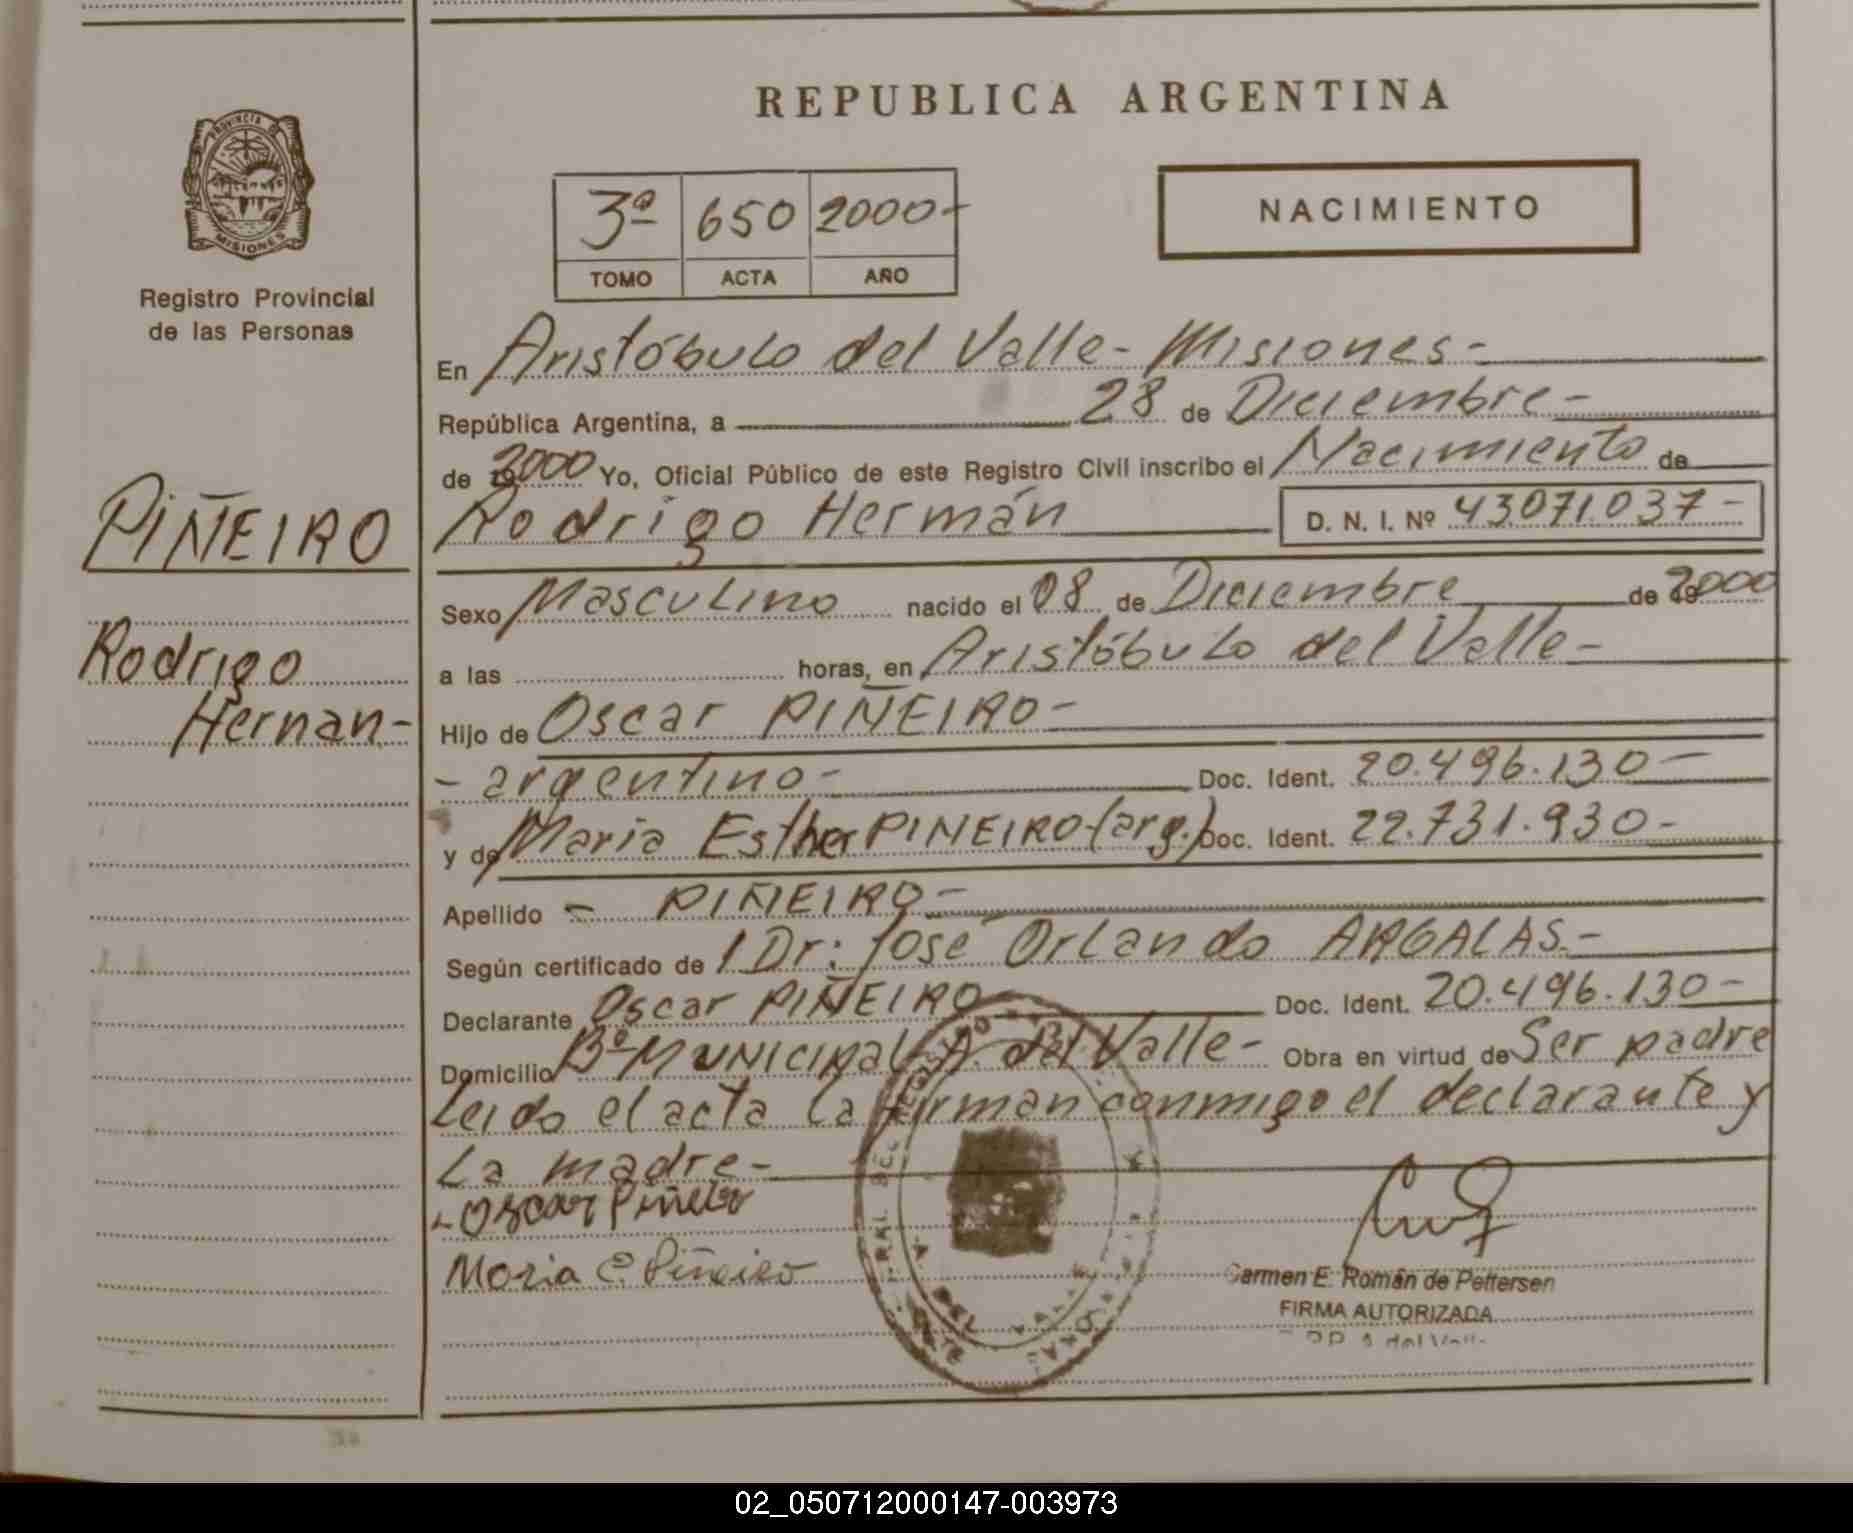 REPUBLICA ARGENTINA
PROVINCIA DE
MISIONES
Registro Provincial
de las Personas
3º 650 2000-
TOMO ACTA AÑO
NACIMIENTO
En Aristóbulo del Valle- Misiones-
República Argentina, a 28 de Diciembre-
de 2000 Yo, Oficial Público de este Registro Civil inscribo el Nacimiento de
PIÑEIRO
Rodrigo Hermán D. N. I. Nº 43.071.037-
Sexo Masculino nacido el 08 de Diciembre de 2000
Rodrigo
a las horas, en Aristóbulo del Valle-
Hernan-
Hijo de Oscar PIÑEIRO-
- argentino- Doc. Ident. 20.496.130-
y de Maria Esther PINEIRO (arg.) Doc. Ident. 22.731.930-
Apellido - PIÑEIRO-
Según certificado de l Dr: José Orlando ARGALAS.-
Declarante Oscar PIÑEIRO Doc. Ident. 20.496.130-
Domicilio Bº MUNICIPAL A. del Valle- Obra en virtud de Ser padre
Leido el acta la firman conmigo el declarante y
La madre-
- Oscar Piñeiro
Maria E. Piñeiro
Carmen E. Román de Pettersen
FIRMA AUTORIZADA
02_050712000147-003973